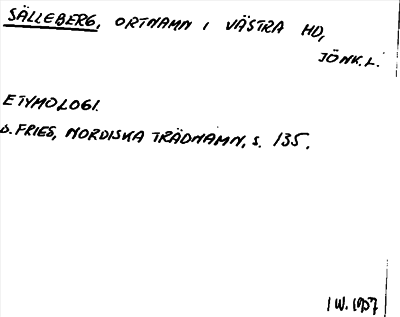 SÄLLEBERG, ORTNAMN I VÄSTRA HD,
JÖNK.L.
ETYMOLOGI.
S. FRIES, NORDISKA TRÄDNAMN, S. 135.
I W. 1957